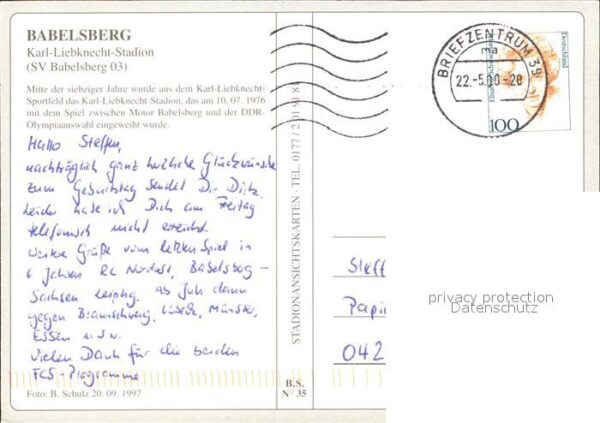 BABELSBERG
Karl-Liebknecht-Stadion
(SV Babelsberg 03)
Mitte der siebziger Jahre wurde aus dem Karl-Liebknecht-
Sportfeld das Karl-Liebknecht-Stadion, das am 10. 07. 1976
mit dem Spiel zwischen Motor Babelsberg und der DDR-
Olympiaauswahl eingeweiht wurde.
Hallo Steffen,
nachträglich ganz herzliche Glückwünsche
zum Geburtstag sendet Dir Dirk.
Leider habe ich Dich am Freitag
telefonisch nicht erreicht.
Weitere Grüße vom letzten Spiel in
6 Jahren RL Nordost, Babelsberg -
Sachsen Leipzig. Ab Juli dann
gegen Braunschweig, Lübeck, Münster,
Essen u.s.w.
Vielen Dank für die beiden
FCS-Programme
Foto: B. Schulz 20. 09. 1997
STADIONANSICHTSKARTEN · TEL. 0177/
B.S.
N° 35
BRIEFZENTRUM 39
ma
22.-5.00-20
Deutschland
100
Steff
Papi
042
privacy protection
Datenschutz